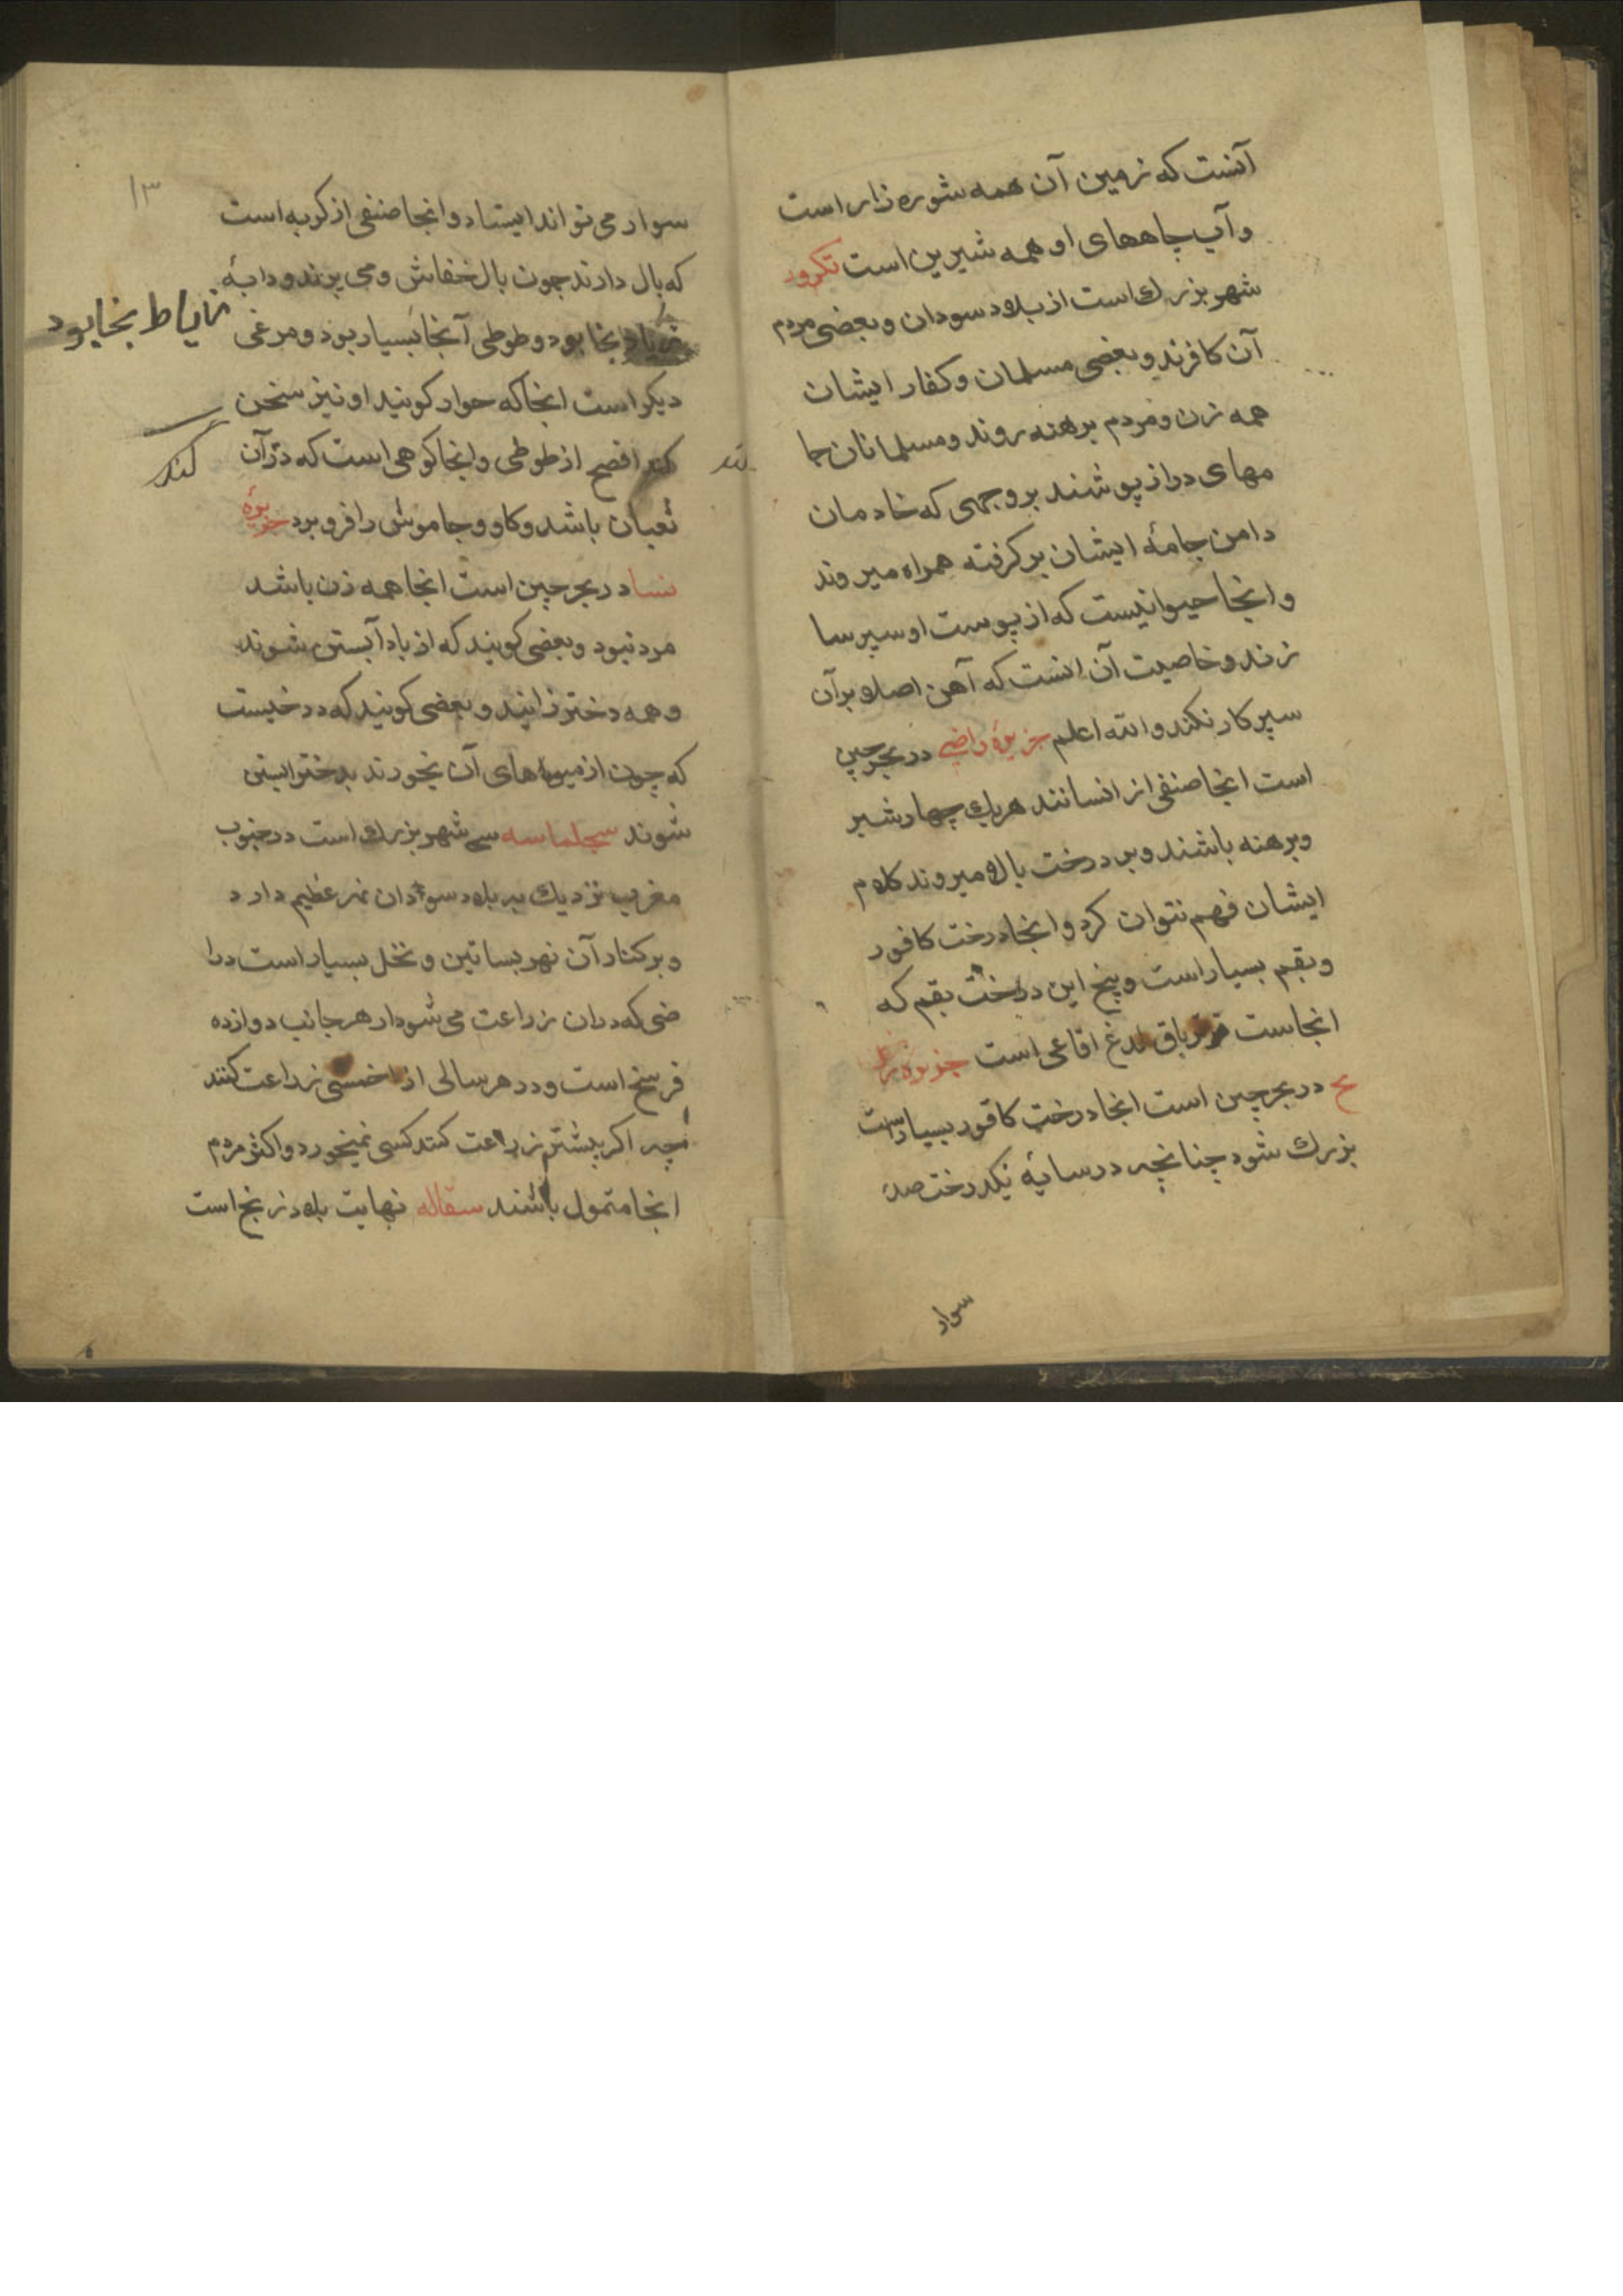 آنست که زمین آن همه شوره زار است
و آب چاههای او همه شیرین است تکرور
شهر بزرك است از بلاد سودان و بعضی مردم
آن کافرند و بعضی مسلمان و کفار ایشان
همه زن و مردم برهنه روند و مسلمانان جا
مهای دراز پوشند بر وجهی که خادمان
دامن جامهٔ ایشان بر کرفته همراه میروند
و انجا حیوانیست که از پوست او سپر سا
زند و خاصیت آن انست که آهن اصلا بر آن
سپر کار نکند والله اعلم جزیرهٔ راضی در بحر چین
است انجا صنفی از انسانند هریك چهار شبر
و برهنه باشند و بر درخت بالا میروند کلام
ایشان فهم نتوان کرد و انجا درخت کافور
و بقم بسیار است و بیخ این درخت بقم که
انجاست تریاق لدغ افاعی است جزیرهٔ را
یح در بحر چین است انجا درخت کافور بسیار است
بزرك شود چنانچه در سایهٔ یکدرخت صد
سواد
۱۳
سوار می تواند ایستاد و انجا صنفی از کربه است
که بال دارند چون بال خفاش و می پرند و دابهٔ
زیاد بخا بود و طوطی آنجا بسیار بود و مرغی
زیاط بخا بود
دیکر است انجا که حوار کویند او نیز سخن
کند افصح از طوطی و انجا کوهی است که در آن
کند
ثعبان باشد و کاو و جاموش را فرو برد جزیرهٔ
نسا در بحر چین است انجا همه زن باشد
مرد نبود و بعضی کویند که از باد آبستن شوند
و همه دختر زایند و بعضی کویند که درختیست
که چون از میوهای آن بخورند بدختر ابستن
شوند سجلماسه شهر بزرك است در جنوب
مغرب نزدیك به بلاد سودان نهر عظیم دارد
و بر کنار آن نهر بساتین و نخل بسیار است درا
ضی که دران زراعت می شود از هر جانب دوازده
فرسخ است و در هر سالی از خمسی زراعت کنند
چه اکر بیشتر زراعت کنند کسی نمیخورد و اکثر مردم
انجا متمول باشند سقاله نهایت بلاد زنج است